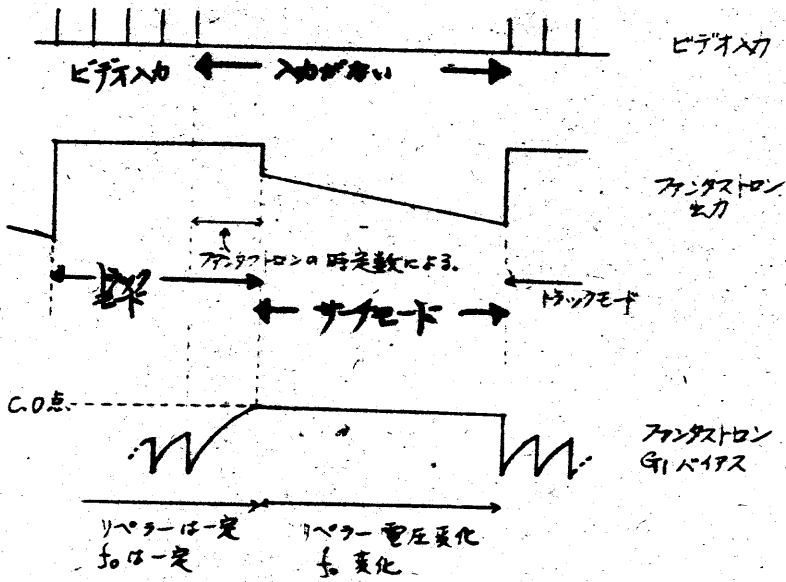 ビデオ入力
ビデオ入力
入力がない
ファンタストロン
出力
ファンタストロンの時定数による。
トラック
モード
サーチモード
トラックモード
C.O点
ファンタストロン
G1バイアス
リペラーは一定
f₀は一定
リペラー電圧変化
f₀変化